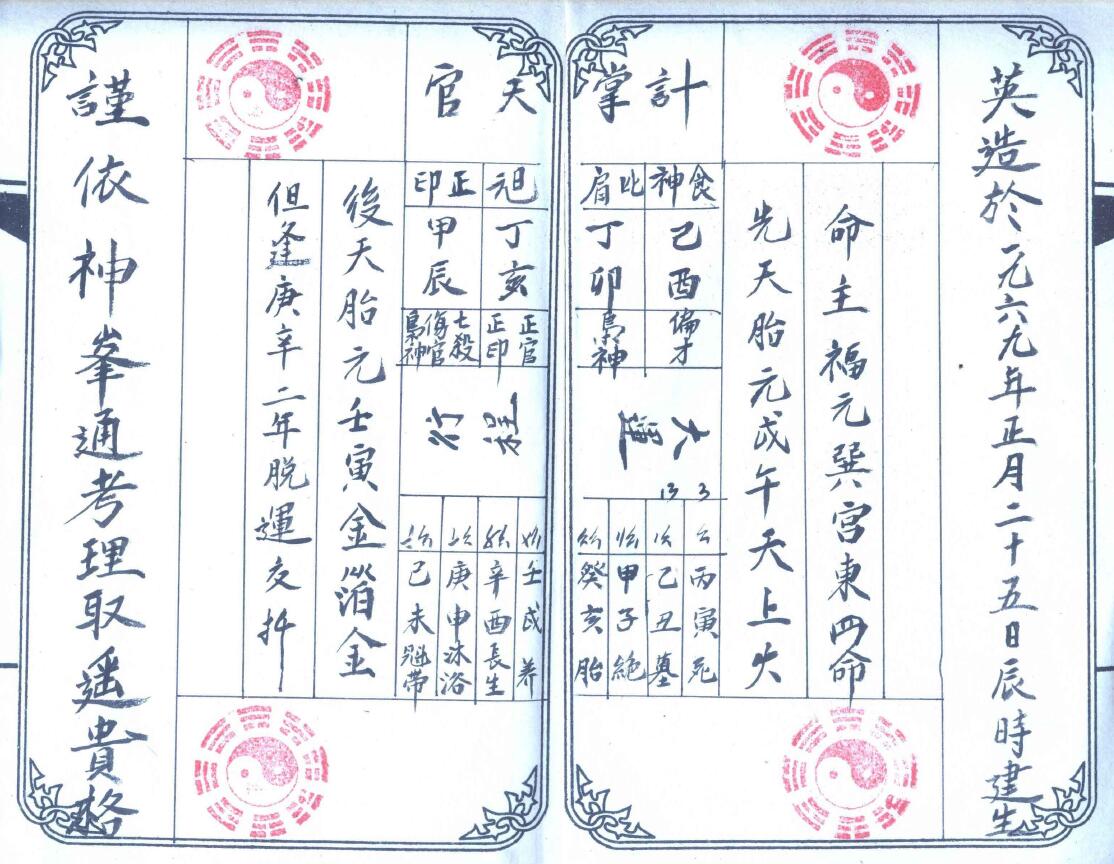 英造於一九六九年正月二十五日辰時建生
命主福元巽宮東四命
先天胎元戊午天上火
計掌天官
食神
己酉
偏才
比肩
丁卯
梟神
日元
丁亥
正官
正印
正印
甲辰
七殺
傷官
梟神
大運行程
丙寅死
乙丑墓
甲子絕
癸亥胎
壬戌养
辛酉長生
庚申沐浴
己未冠带
後天胎元壬寅金箔金
但逢庚辛二年脱運交
謹依神峯通考理取遥貴格